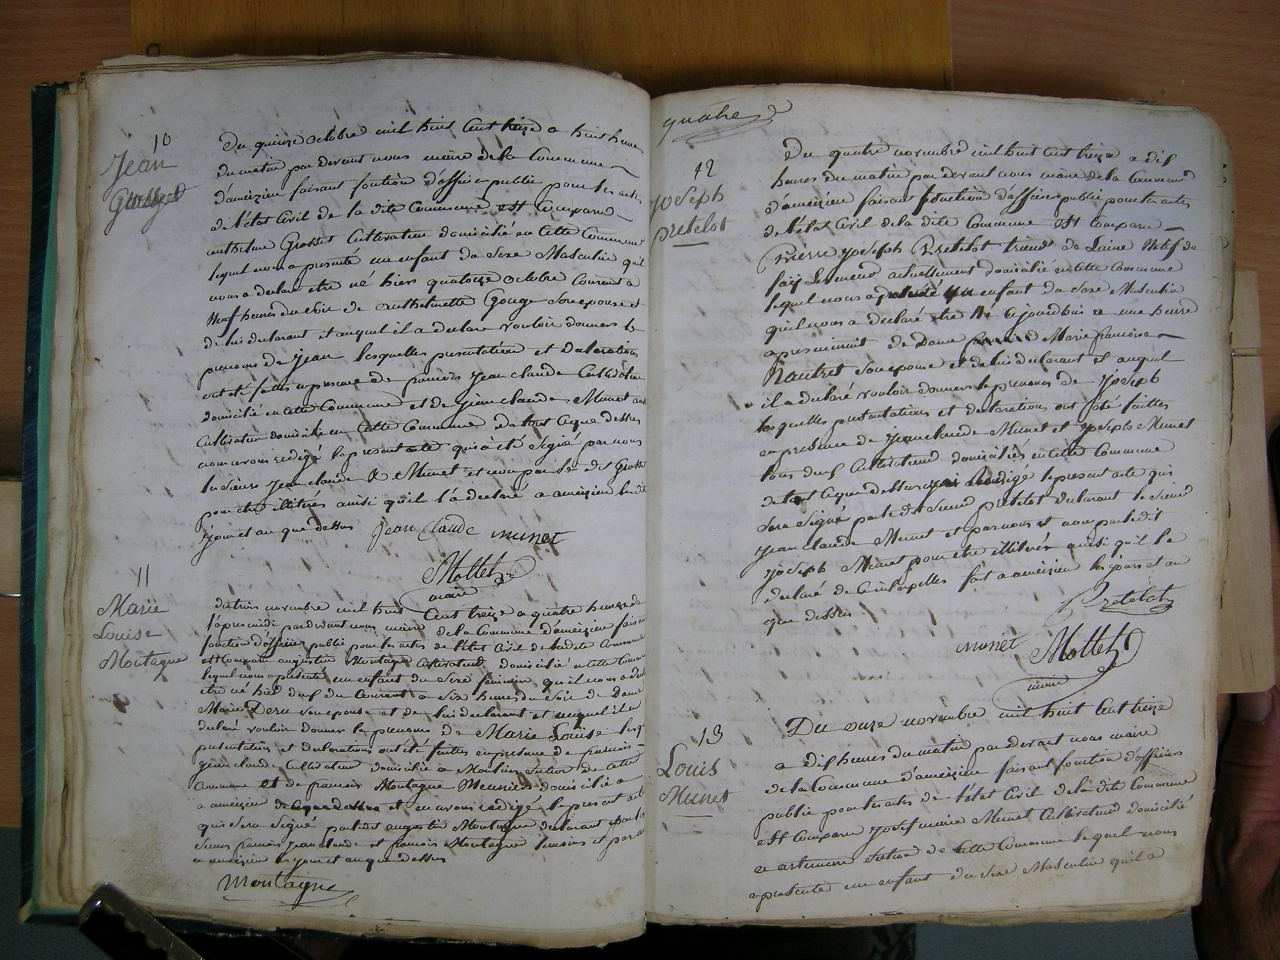 10
Jean
Grosset
Du quinze octobre mil huit cent treize a huit heure
du matin par devant nous maire de la Commune
d'ameizieu faisant fontion d'officier public pour les actes
de l'état Civil de la dite Commune est Comparu
anthelme Grosset Cultivateur domicilié en Cette Commune
lequel nous a presenté un enfant du Sexe Masculin qu'il
nous a declaré etre né hier quatorze octobre Courant a
Neuf heures du Soir de anthelmette Gouge Son epouse et
de lui declarant et auquel il a declaré vouloir donner le
prenom de Jean lesquelles presentation et declaration
ont été faites en presence de Jean Claude Cultivateur
domicilié en Cette Commune et de Jean Claude Munet
Cultivateur domicilié en Cette Commune de tout Ceque dessus
nous avons redigé le present acte qui a été Signé par nous
le Sieur Jean Claude Munet et non par le dit Grosset
pour etre illitéré ainsi qu'il l'a declaré a ameizieu les dit
jour et an que dessus Jean Claude munet
Mollet
maire
11
Marie
Louise
Montagne
du trois novembre mil huit Cent treize a quatre heures de
l'apres midi par devant nous maire de la Commune d'ameizieu faisant
fontion d'officier public pour les actes de l'état Civil de la dite Commune
est Comparu augustin Montagne Cultivateur domicilié en Cette Commune
lequel nous a presenté un enfant du Sexe feminin qu'il nous a declaré
etre né hier deux du Courant a Six heures du Soir de Dame
Marie Deru Son epouse et de lui declarant et auquel il a
declaré vouloir donner le prenom de Marie Louise lesq
presentation et declaration ont été faites en presence de francois
jean claude Cultivateur domicilié a de Cette
Commune et de francois Montagne Meunier domicilié a
a ameizieu de Ceque dessus et en avons redigé le present acte
qui Sera Signé par le dit augustin Montagne declarant par le
Sieur francois Jean claude et francois Montagne temoins et par nous
a ameizieu les jour et an que dessus
montagne
quatre
12
joseph
pretelat
Du quatre novembre mil huit cent treize a dix
heures du matin par devant nous maire de la Commune
d'ameizieu faisant fonction d'officier public pour les actes
de l'état Civil de la dite Commune est Comparu
Pierre joseph Pretelat natif de
actuellement domicilié en Cette Commune
lequel nous a presenté un enfant du Sexe Masculin
qu'il nous a declaré etre Né aujourdhui a une heure
apres minuit de Dame Marie francoise
Nautret Son epouse et de lui declarant et auquel
il a declaré vouloir donner le prenom de joseph
lesquelles presentations et declarations ont été faittes
en presence de jean claude Munet et joseph Munet
tous deux Cultivateurs domiciliés en cette Commune
de tout Ceque dessus j'ai redigé le present acte qui
Sera Signé par le dit Sieur Pretelat declarant le Sieur
jean claude Munet et par nous et non par le dit
joseph Munet pour etre illitéré ainsi qu'il l'a
declaré de Ce interpellés fait a ameizieu les jour et an
que dessus
Pretelat
munet Mollet
maire
13
Louis
Munet
Du onze novembre mil huit Cent treize
a dix heures du matin par devant nous maire
de la Commune d'ameizieu faisant fontion d'officier
public pour les actes de l'état Civil de la dite Commune
est Comparu Munet Cultivateur domicilié
a artemare de Cette Commune lequel nous
a presenté un enfant du Sexe Masculin qu'il a